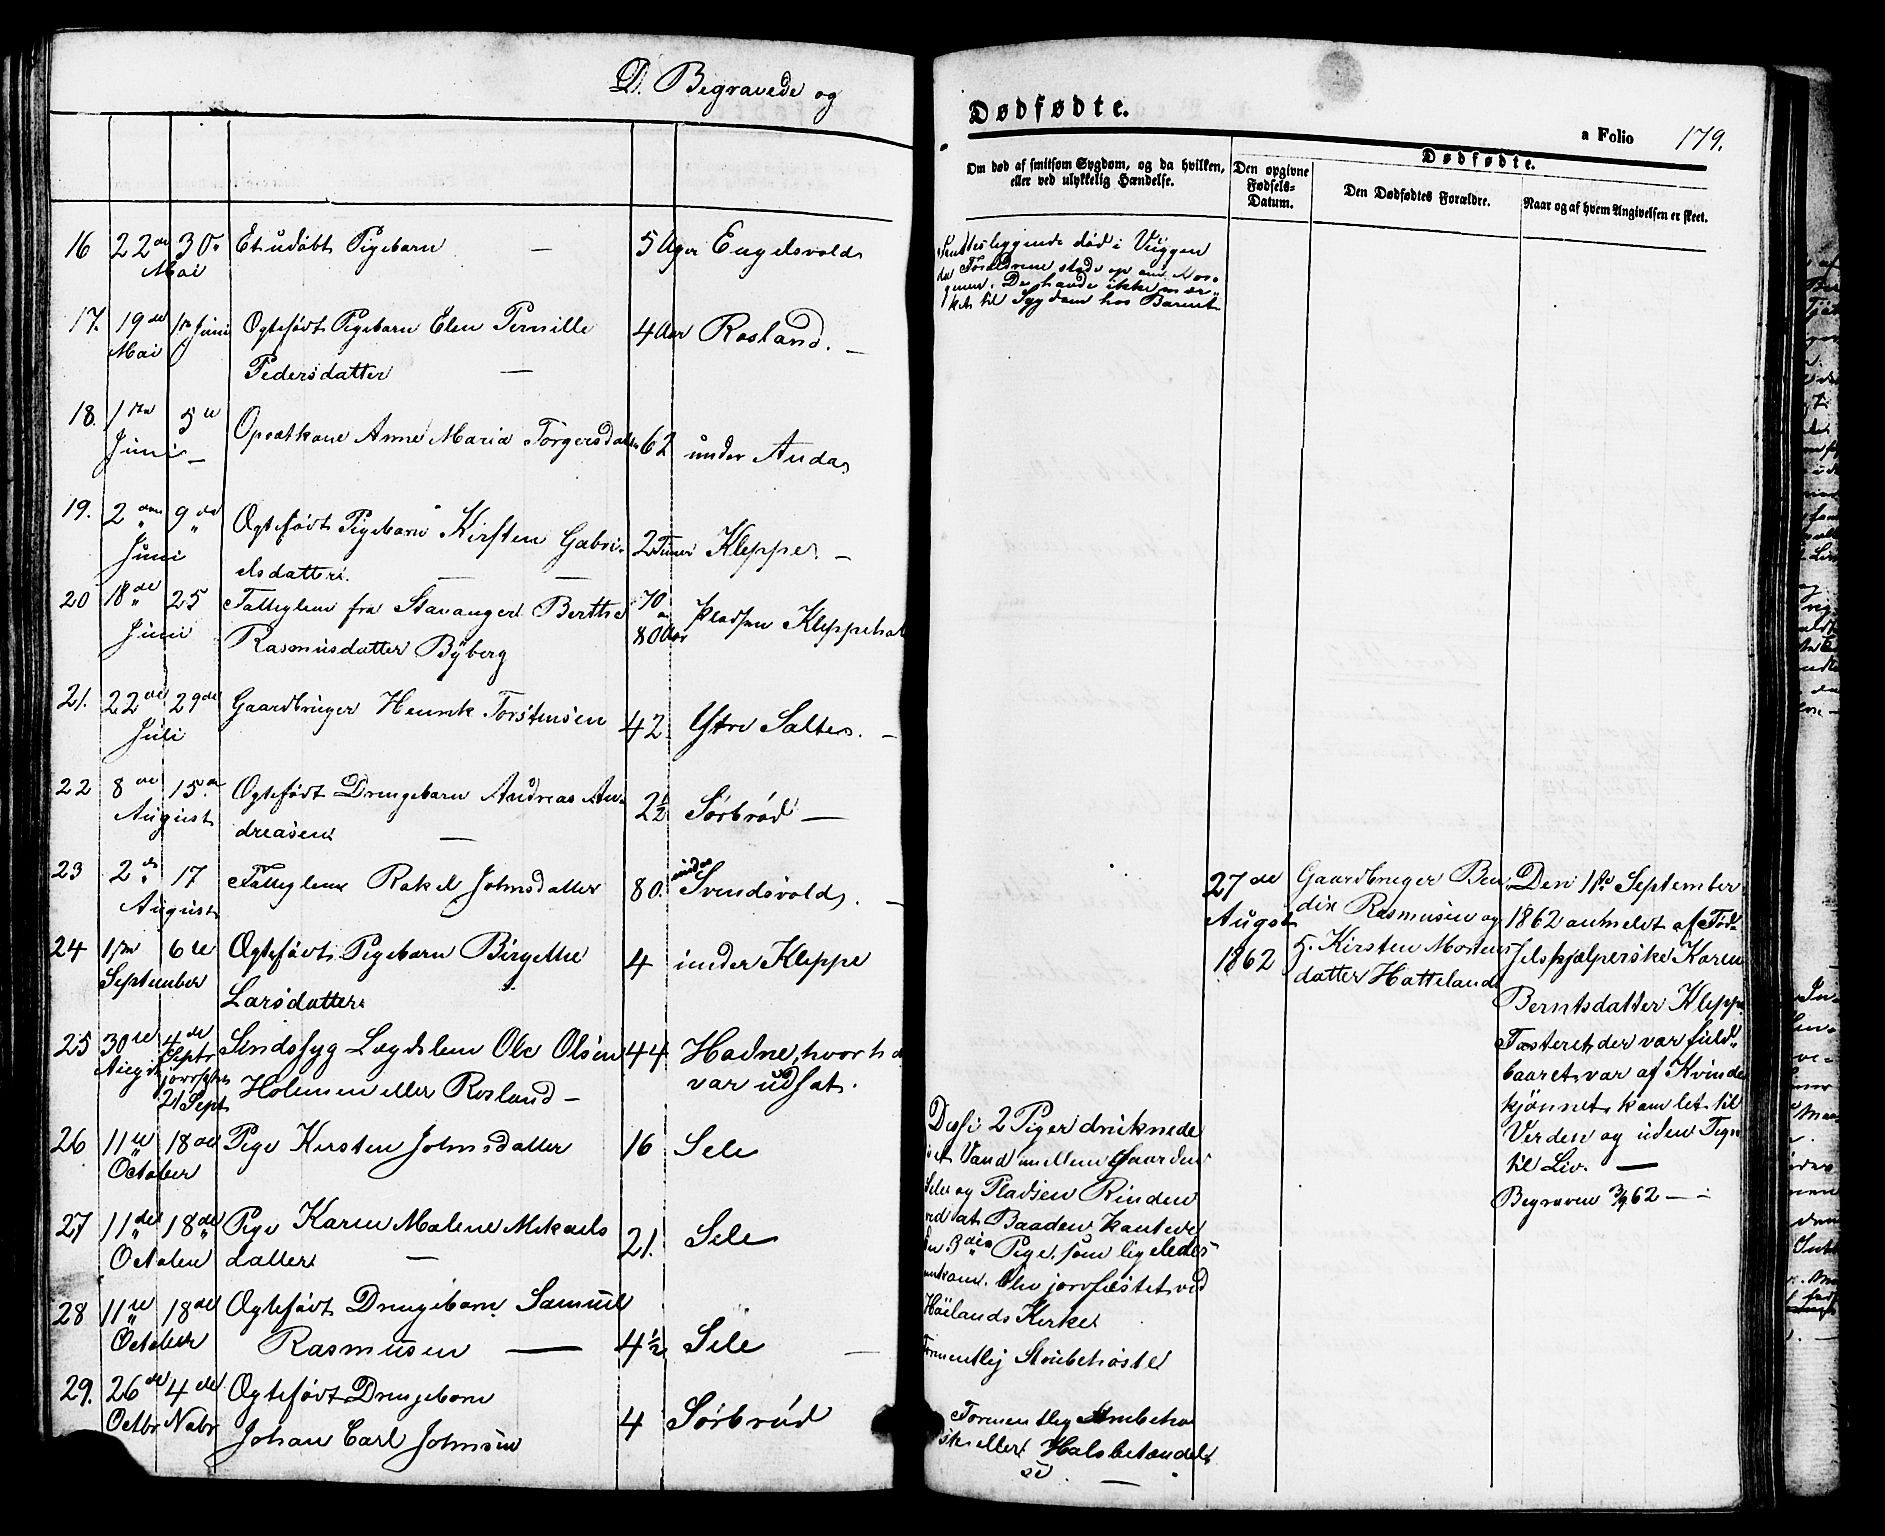 D. Begravede og
16 22de 30. Et udøbt Pigebarn — 5 Uger Engelsvold
Mai
17. 19de 1ste Juni Ægtefødt Pigebarn Elen Pernille 4 Aar Rosland. —
Mai Pedersdatter —
18. 1ste 5te Opsætkone Anne Maria Torgersdatter 62 under Anda
Juni —
19. 2den 9de Ægtefødt Pigebarn Kirsten Gabri- 2 Timer Kleppe. —
Juni elsdatter. — —
20 18de 25 Fattiglem fra Stavanger Berthe 70 a Pladsen Kleppeholen
Juni Rasmusdatter Byberg 80 Aar
21. 22de 29de Gaardbruger Henrik Torstensen 42 Ytre Salte. —
Juli
22 8de 15de Ægtefødt Drengebarn Andreas An- 2½ Sørbrød —
August dreasen —
23 2de 17 Fattiglem Rakel Johnsdatter 80. under Svendsvold. —
August
24 1ste 6te Ægtefødt Pigebarn Birgethe 4 under Kleppe
September Larsdatter
25 30te 4de Sindssyg Lægdslem Ole Olsen 44 Hadne, hvor han
Augst Septr jordfæstet Holmen eller Rosland — var udsat.
21 Sept
26 11te 18de Pige Kirsten Johnsdatter 16 Sele
October
27 11te 18de Pige Karen Malene Mikaels 21. Sele
October datter —
28 11te 18de Ægtefødt Drengebarn Samuel
October Rasmusen — 4½ Sele —
29. 26de 4de Ægtefødt Drengebarn
Octbr Nobr Johan Carl Johnsen 4 Sørbrød
Dødfødte.
a Folio 179.
Om død af smitsom Sygdom, og da hvilken,
eller ved ulykkelig Hændelse.
Den opgivne
Fødsels-
Datum.
Dødfødte.
Den Dødfødtes Forældre.
Naar og af hvem Angivelsen er skeet.
Fandtes liggende død i Vuggen
da Forældrene stode op om Mor-
genen. De havde ikke mær-
ket til Sygdom hos Barnet
27de
Augst
1862
Gaardbruger Ben-
dix Rasmusen og
H. Kirsten Mortens
datter Hatteland
Den 1ste September
1862 anmeldt af Fød-
selshjælperske Karen
Berntsdatter Kleppe
Fosteret, der var fuld-
baaret, var af Kvinde
kjønnet, kom let til
Verden og uden Tegn
til Liv. —
Begraven 3/9 62 — —
Disse 2 Piger druknede
i et Vand imellem Gaarden
Sele og Pladsen Rinden
ved at Baaden kantrede
Den 3die Pige, som ligeledes
omkom, blev jordfæstet ved
Høilands Kirke.
Formentlig Strubehoste
Formentlig Strubeho
ste eller Halsbetændel
se. —